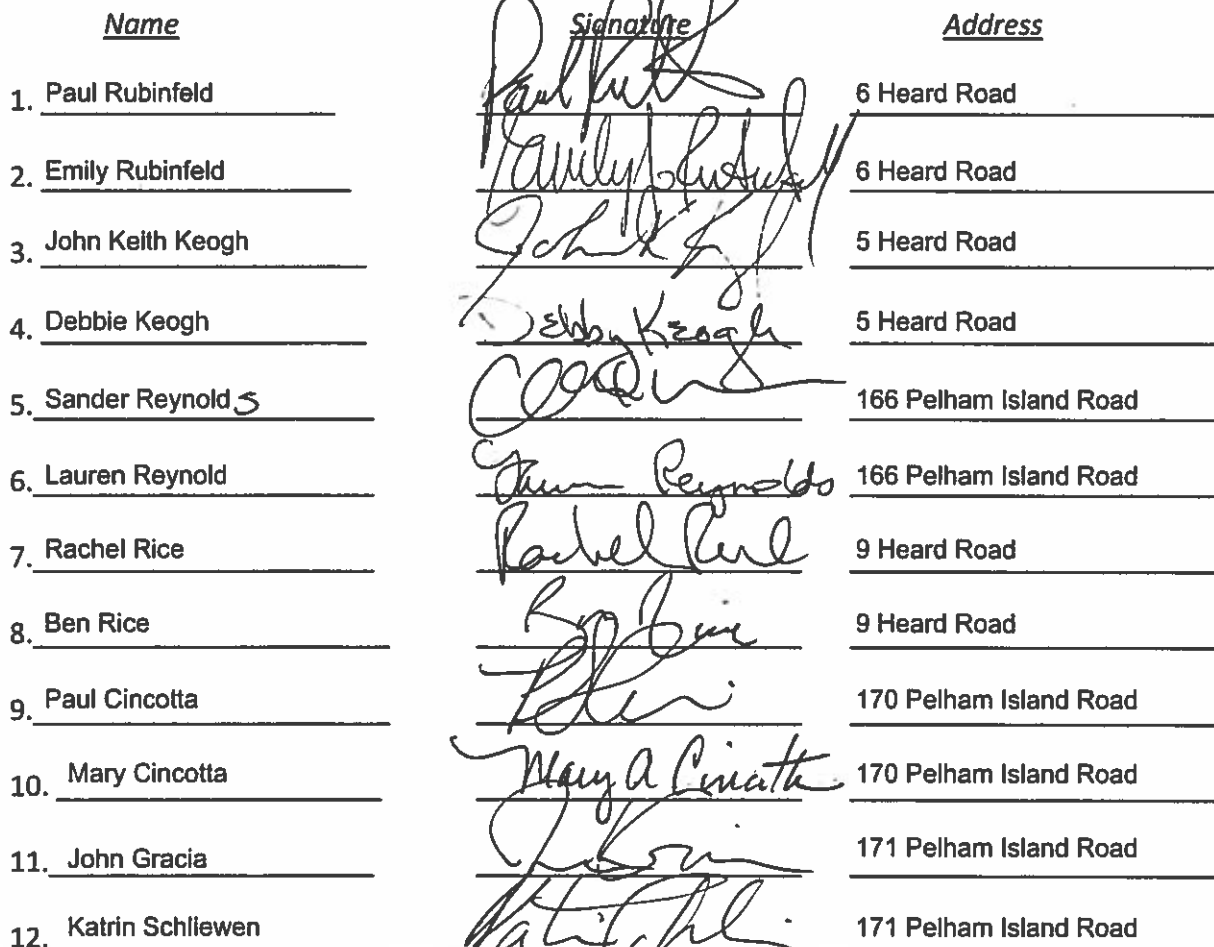 Name Signature Address
1. Paul Rubinfeld Paul 6 Heard Road
2. Emily Rubinfeld Emily J Rubinfeld 6 Heard Road
3. John Keith Keogh John K 5 Heard Road
4. Debbie Keogh Debby Keogh 5 Heard Road
5. Sander Reynolds 166 Pelham Island Road
6. Lauren Reynold Reynolds 166 Pelham Island Road
7. Rachel Rice Rachel Rice 9 Heard Road
8. Ben Rice Ben Rice 9 Heard Road
9. Paul Cincotta 170 Pelham Island Road
10. Mary Cincotta Mary A Cincotta 170 Pelham Island Road
11. John Gracia 171 Pelham Island Road
12. Katrin Schliewen 171 Pelham Island Road